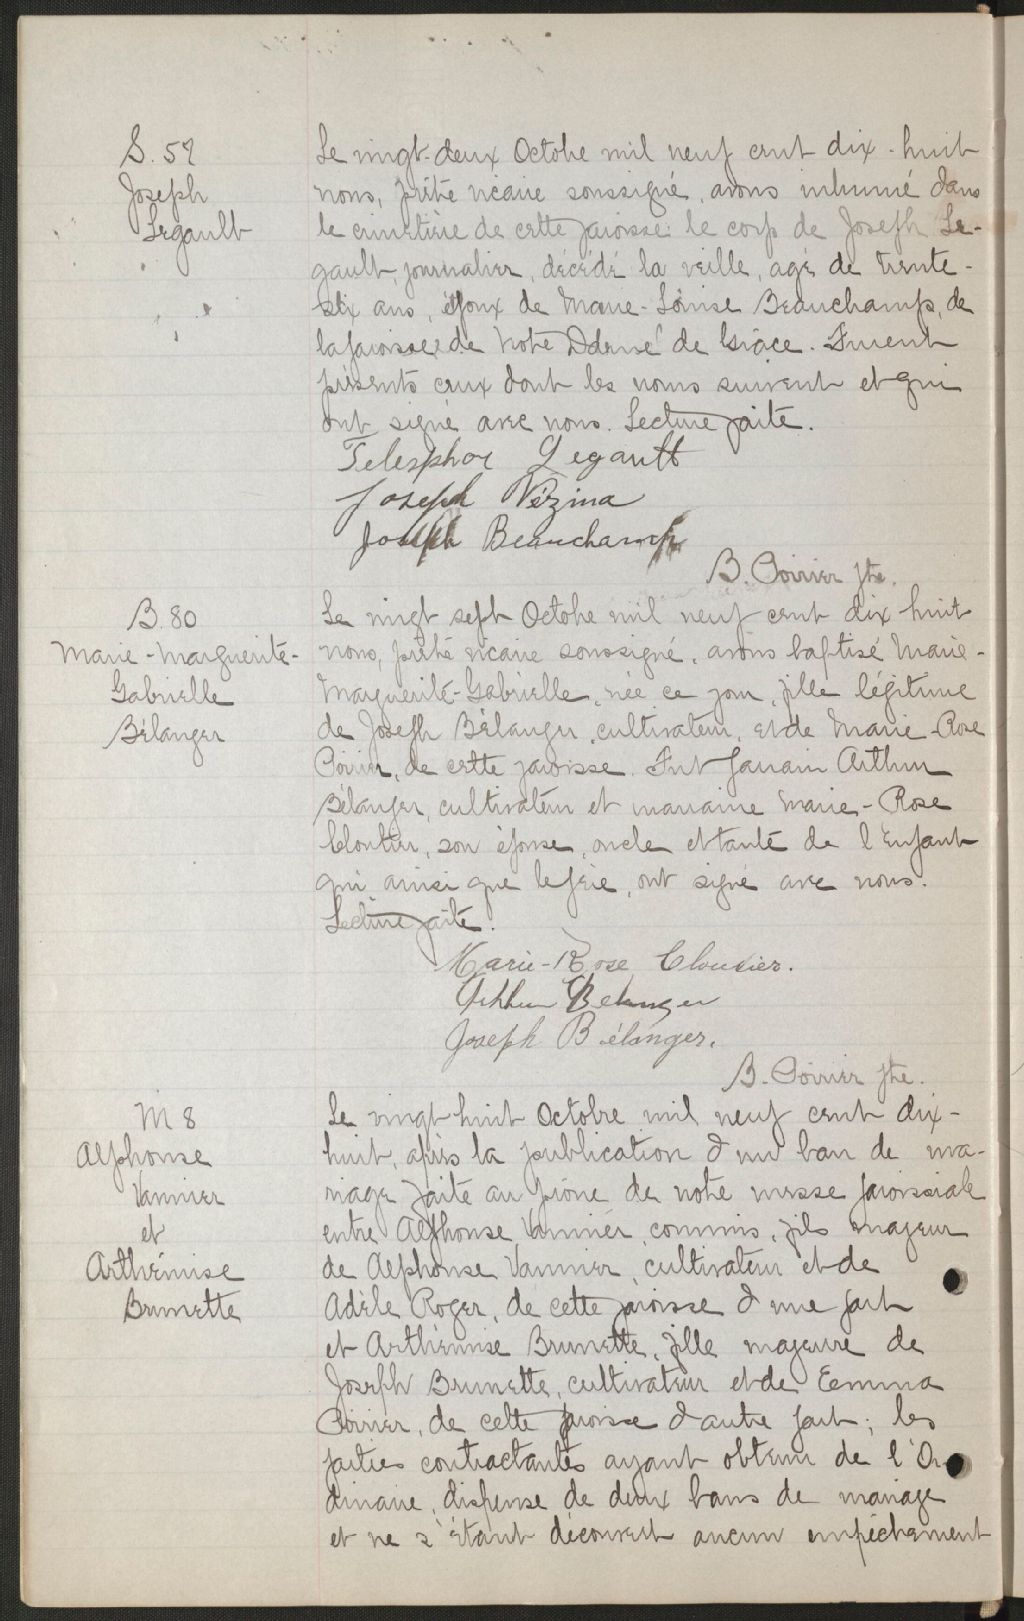 S. 57
Joseph
Legault
Le vingt-deux Octobre mil neuf cent dix-huit
nous, prêtre vicaire soussigné, avons inhumé dans
le cimetière de cette paroisse le corps de Joseph Le-
gault, journalier, décédé la veille, agé de trente-
six ans, époux de Marie-Louise Beauchamp, de
la paroisse de Notre Dame de Grâce. Furent
présents ceux dont les noms suivent et qui
ont signé avec nous. Lecture faite.
Telesphor Legault
Joseph Vézina
Joseph Beauchamp
B. Poirier ptre.
B. 80
Marie-Marguerite-
Gabrielle
Bélanger
Le vingt sept Octobre mil neuf cent dix huit
nous, prêtre vicaire soussigné, avons baptisé Marie-
Marguerite-Gabrielle, née ce jour, fille légitime
de Joseph Bélanger, cultivateur, et de Marie-Rose
Poirier, de cette paroisse. Fut parrain Arthur
Bélanger, cultivateur et marraine Marie-Rose
Cloutier, son épouse, oncle et tante de l'Enfant
qui ainsi que le père, ont signé avec nous.
Lecture faite.
Marie-Rose Cloutier.
Arthur Belanger
Joseph Bélanger.
B. Poirier ptre.
M 8
Alphonse
Vannier
et
Arthémise
Brunette
Le vingt huit Octobre mil neuf cent dix-
huit, après la publication d'un ban de ma-
riage faite au prône de notre messe paroissiale
entre Alphonse Vannier, commis, fils majeur
de Alphonse Vannier, cultivateur et de
Adèle Roger, de cette paroisse d'une part
et Arthémise Brunette, fille majeure de
Joseph Brunette, cultivateur et de Emma
Poirier, de cette paroisse d'autre part; les
parties contractantes ayant obtenu de l'Or-
dinaire, dispense de deux bans de mariage
et ne s'étant découvert aucun empêchement